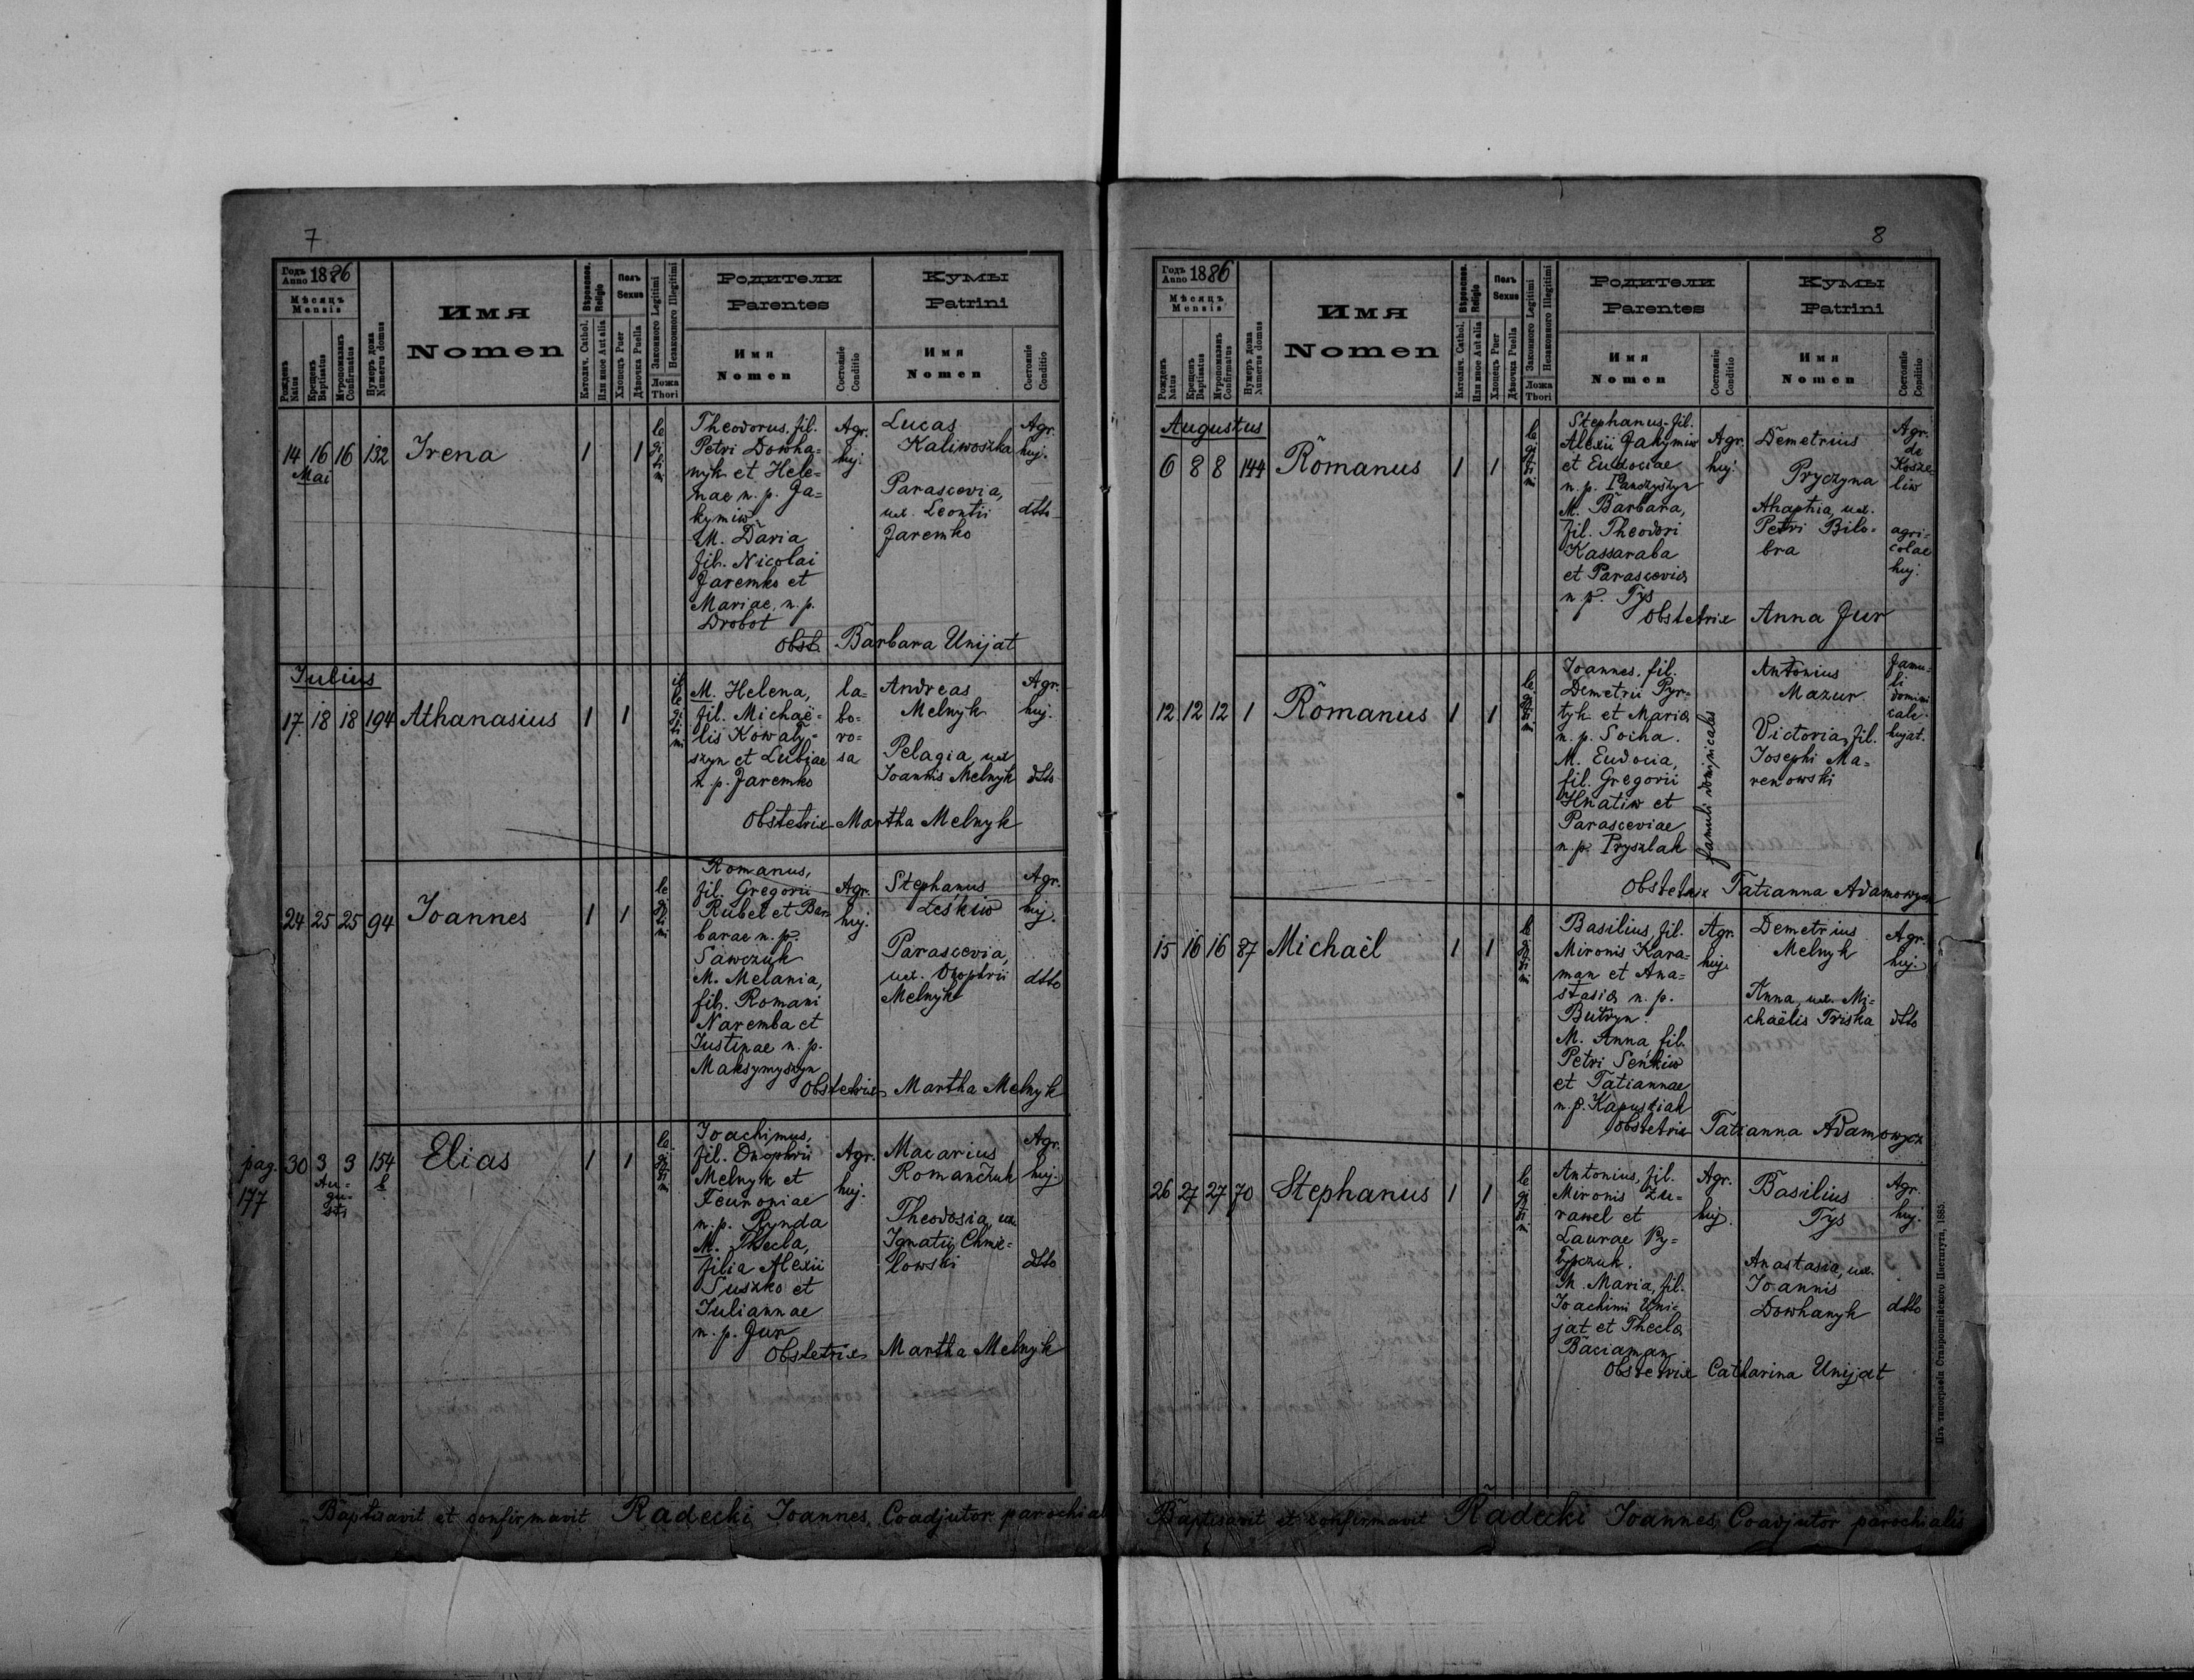 7
Годъ Anno 1886
Мѣсяцъ
Mensis
Рожденъ Natus
Крещенъ Baptisatus
Мѵропомазанъ Confirmatus
Нумеръ дома Numerus domus
Имя
Nomen
Вѣроисповѣд. Religio
Католич. Cathol.
Или иное Aut alia
Полъ
Sexus
Хлопецъ Puer
Дѣвочка Puella
Законного Legitimi
Незаконного Illegitimi
Ложа
Thori
Родители
Parentes
Имя
Nomen
Состоянie
Conditio
Кумы
Patrini
Имя
Nomen
Состоянie
Conditio
14 16 16 132 Irena 1 1
Mai
le
gi
ti
mi
Theodorus, fil.
Petri Dowha=
nyk et Hele=
nae n. p. Ja=
kymiw
M. Daria
fil. Nicolai
Jaremko et
Mariae, n. p.
Drobot
Agr.
huj.
Lucas
Kaliwoszka
Parascevia,
ux. Leontii
Jaremko
Agr.
huj.
dtto
Obst. Barbara Unijat
Julius
17 18 18 194 Athanasius 1 1
il
le
gi
ti
mi
M. Helena,
fil. Michaë=
lis Kowaly=
szyn et Lubiae
n. p. Jaremko
la=
bo=
ro=
sa
Andreas
Melnyk
Pelagia, ux
Joannis Melnyk
Agr.
huj.
dtto
Obstetrix Martha Melnyk
24 25 25 94 Joannes 1 1
le
gi
ti
mi
Romanus,
fil. Gregorii
Rubel et Bar
barae n. p.
Sawczuk
M. Melania,
fil. Romani
Naremba et
Justinae n. p.
Maksymyszyn
Agr.
huj.
Stephanus
Leśkiw
Parascevia,
ux. Onophrii
Melnyk
Agr.
huj.
dtto
Obstetrix Martha Melnyk
pag.
177
30 3 3 154 Elias 1 1
Au=
gu=
sti
b
le
gi
ti
mi
Joachimus,
fil. Onophrii
Melnyk et
Feuroniae
n. p. Rynda
M. Thecla,
filia Alexii
Suszko et
Juliannae
n. p. Jur
Agr.
huj.
Macarius
Romańczuk
Theodosia, ux.
Ignatii Chmie=
lowski
Agr.
huj.
dtto
Obstetrix Martha Melnyk
Baptisavit et confirmavit Radecki Joannes, Coadjutor parochial
8
Годъ Anno 1886
Мѣсяцъ
Mensis
Рожденъ Natus
Крещенъ Baptisatus
Мѵропомазанъ Confirmatus
Нумеръ дома Numerus domus
Имя
Nomen
Вѣроисповѣд. Religio
Католич. Cathol.
Или иное Aut alia
Полъ
Sexus
Хлопецъ Puer
Дѣвочка Puella
Законного Legitimi
Незаконного Illegitimi
Ложа
Thori
Родители
Parentes
Имя
Nomen
Состоянie
Conditio
Кумы
Patrini
Имя
Nomen
Состоянie
Conditio
Augustus
6 8 8 144 Romanus 1 1
le
gi
ti
mi
Stephanus fil.
Alexii Jakymiw
et Eudociae
n. p. Panczyszyn
M. Barbara,
fil. Theodori
Kassaraba
et Parascevia
n. p. Tys
Agr.
huj.
Demetrius
Pryczyna
Ahaphia, ux.
Petri Bilo=
bra
Agr.
de
Kosze=
liw
agri=
colae
huj.
Obstetrix Anna Jur
12 12 12 1 Romanus 1 1
le
gi
ti
mi
Joannes, fil.
Demetrii Pyr=
tyk et Maria
n. p. Socha.
M. Eudocia,
fil. Gregorii
Hnatiw et
Parasceviae
n. p. Pryszlak
famuli dominicales
Antonius
Mazur
Victoria, fil.
Josephi Ma=
renowski
famu=
li
domini
cale
hujat.
Obstetrix Tatianna Adamowycz
15 16 16 87 Michaël 1 1
le
gi
ti
mi
Basilius, fil.
Mironis Kara=
man et Ana=
stasia n. p.
Butryn.
M. Anna fil.
Petri Seńkiw
et Tatiannae
n. p. Kapuściak
Agr.
huj.
Demetrius
Melnyk
Anna, ux. Mi=
chaëlis Triska
Agr.
huj.
dtto
Obstetrix Tatianna Adamowycz
26 27 27 70 Stephanus 1 1
le
gi
ti
mi
Antonius, fil.
Mironis Żu=
rawel et
Laurae Py=
typczuk.
M. Maria, fil.
Joachimi Uni=
jat et Thecla
Baciaman
Agr.
huj.
Basilius
Tys
Anastasia, ux.
Joannis
Dowhanyk
Agr.
huj.
dtto
Obstetrix Catharina Unijat
Изъ типографiи Ставропигiйского Института, 1885.
Baptisavit et confirmavit Radecki Joannes, Coadjutor parochialis